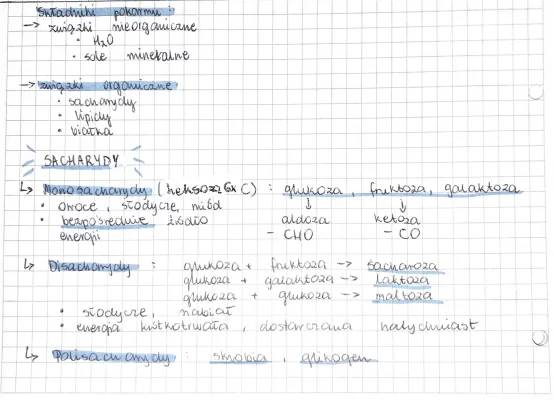 Składniki pokarmu :
→ związki nieorganiczne
• H₂O
• sole mineralne
→ związki organiczne
• sacharydy
• lipidy
• białka
SACHARYDY
↳ Monosacharydy (heksozy 6x C) : glukoza, fruktoza, galaktoza
• owoce, słodycze, miód ↓ ↓
• bezpośrednie źródło aldoza ketoza
energii - CHO - CO
↳ Disacharydy : glukoza + fruktoza → sacharoza
glukoza + galaktoza → laktoza
glukoza + glukoza → maltoza
• słodycze, nabiał
• energia krótkotrwała, dostarczana natychmiast
↳ Polisacharydy : skrobia, glikogen